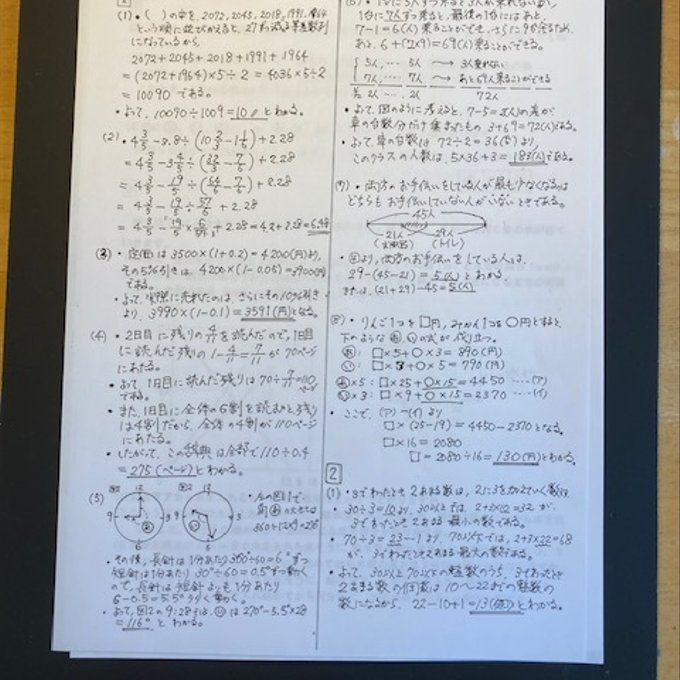 1
(1)・( )の中を、2072, 2045, 2018, 1991, 1964
という順に並びかえると、27ずつ減る等差数列
になっているから、
2072+2045+2018+1991+1964
=(2072+1964)×5÷2=4036×5÷2
=10090である。
・よって、10090÷1009=10とわかる。
(2)・4 3/5-3.8÷(10 2/3-1 1/6)+2.28
=4 3/5-3 4/5÷(32/3-7/6)+2.28
=4 3/5-19/5÷(64/6-7/6)+2.28
=4 3/5-19/5÷57/6+2.28
=4 3/5-19/5×6/57+2.28=4.2+2.28=6.48
(3)・定価は3500×(1+0.2)=4200(円)より、
その5%引きは、4200×(1-0.05)=3990(円)
である。
・よって、実際に売れたのは、さらにその10%引き
より、3990×(1-0.1)=3591(円)となる。
(4)・2日目に残りの4/11を読んだので、1日目
に読んだ残りの1-4/11=7/11が70ページ
にあたる。
・よって、1日目に読んだ残りは70÷7/11=110
ページである。
・また、1日目に全体の6割を読むと、残り
は4割だから、全体の4割が110ページ
にあたる。
・したがって、この辞典は全部で110÷0.4
=275(ページ)とわかる。
(5) 図1 図2
12 3 6 9
12 3 6 9
・左の図1で、
角あの大きさは
・その後、長針は1分あたり360°÷60=6°ずつ
短針は1分あたり30°÷60=0.5°ずつ動く
ので、長針は短針よりも1分あたり
6-0.5=5.5°多く動く。
・よって、図2の9:28では、いは270°-5.5°×28
=116°とわかる。
1台に7人ずつ乗ると、最後の1台にはあと、
7-1=6(人)乗ることができ、さらに9台余るため、
あと、6+(7×9)=69(人)乗ることができる。
5人, … 5人 → 3人乗れない
7人, … 7人 → あと69人乗ることができる
差 2人 … 2人 72人
・よって、図のように考えると、7-5=2(人)の差が、
車の台数分だけ集まったもの 3+69=72(人)である。
・よって、車の台数は72÷2=36(台)より、
このクラスの人数は、5×36+3=183(人)である。
(7)・両方のお手伝いをしている人が最も少なくなるのは
どちらもお手伝いしていない人がいないときである。
45人
21人 29人
(トイレ)
・図より、両方のお手伝いをしている人は、
29-(45-21)=5(人)とわかる
または、(21+29)-45=5(人)
(8)・りんご1つを□円、みかん1つを○円とすると、
下のようなあ、いの式が成り立つ。
あ:□×5+○×3=890(円)
い:□×3+○×5=790(円)
あ×5:□×25+○×15=4450 ……(ア)
い×3:□×9+○×15=2370 ……(イ)
・ここで、(ア)-(イ)より
□×(25-19)=4450-2370となる。
□×16=2080
□=2080÷16=130(円)とわかる。
2
(1)・3でわったとき2あまる数は、2に3を加えていく数で、
・30÷3=10より、30以上では、2+3×10=32が、
3でわったとき2あまる最小の数である。
・70÷3=23…1より、70以下では、2+3×22=68
が、3でわったとき2あまる最大の数である。
・よって、30以上70以下の整数のうち、3でわったとき
2あまる数の個数は10~22までの整数の
数になるから、22-10+1=13(個)とわかる。